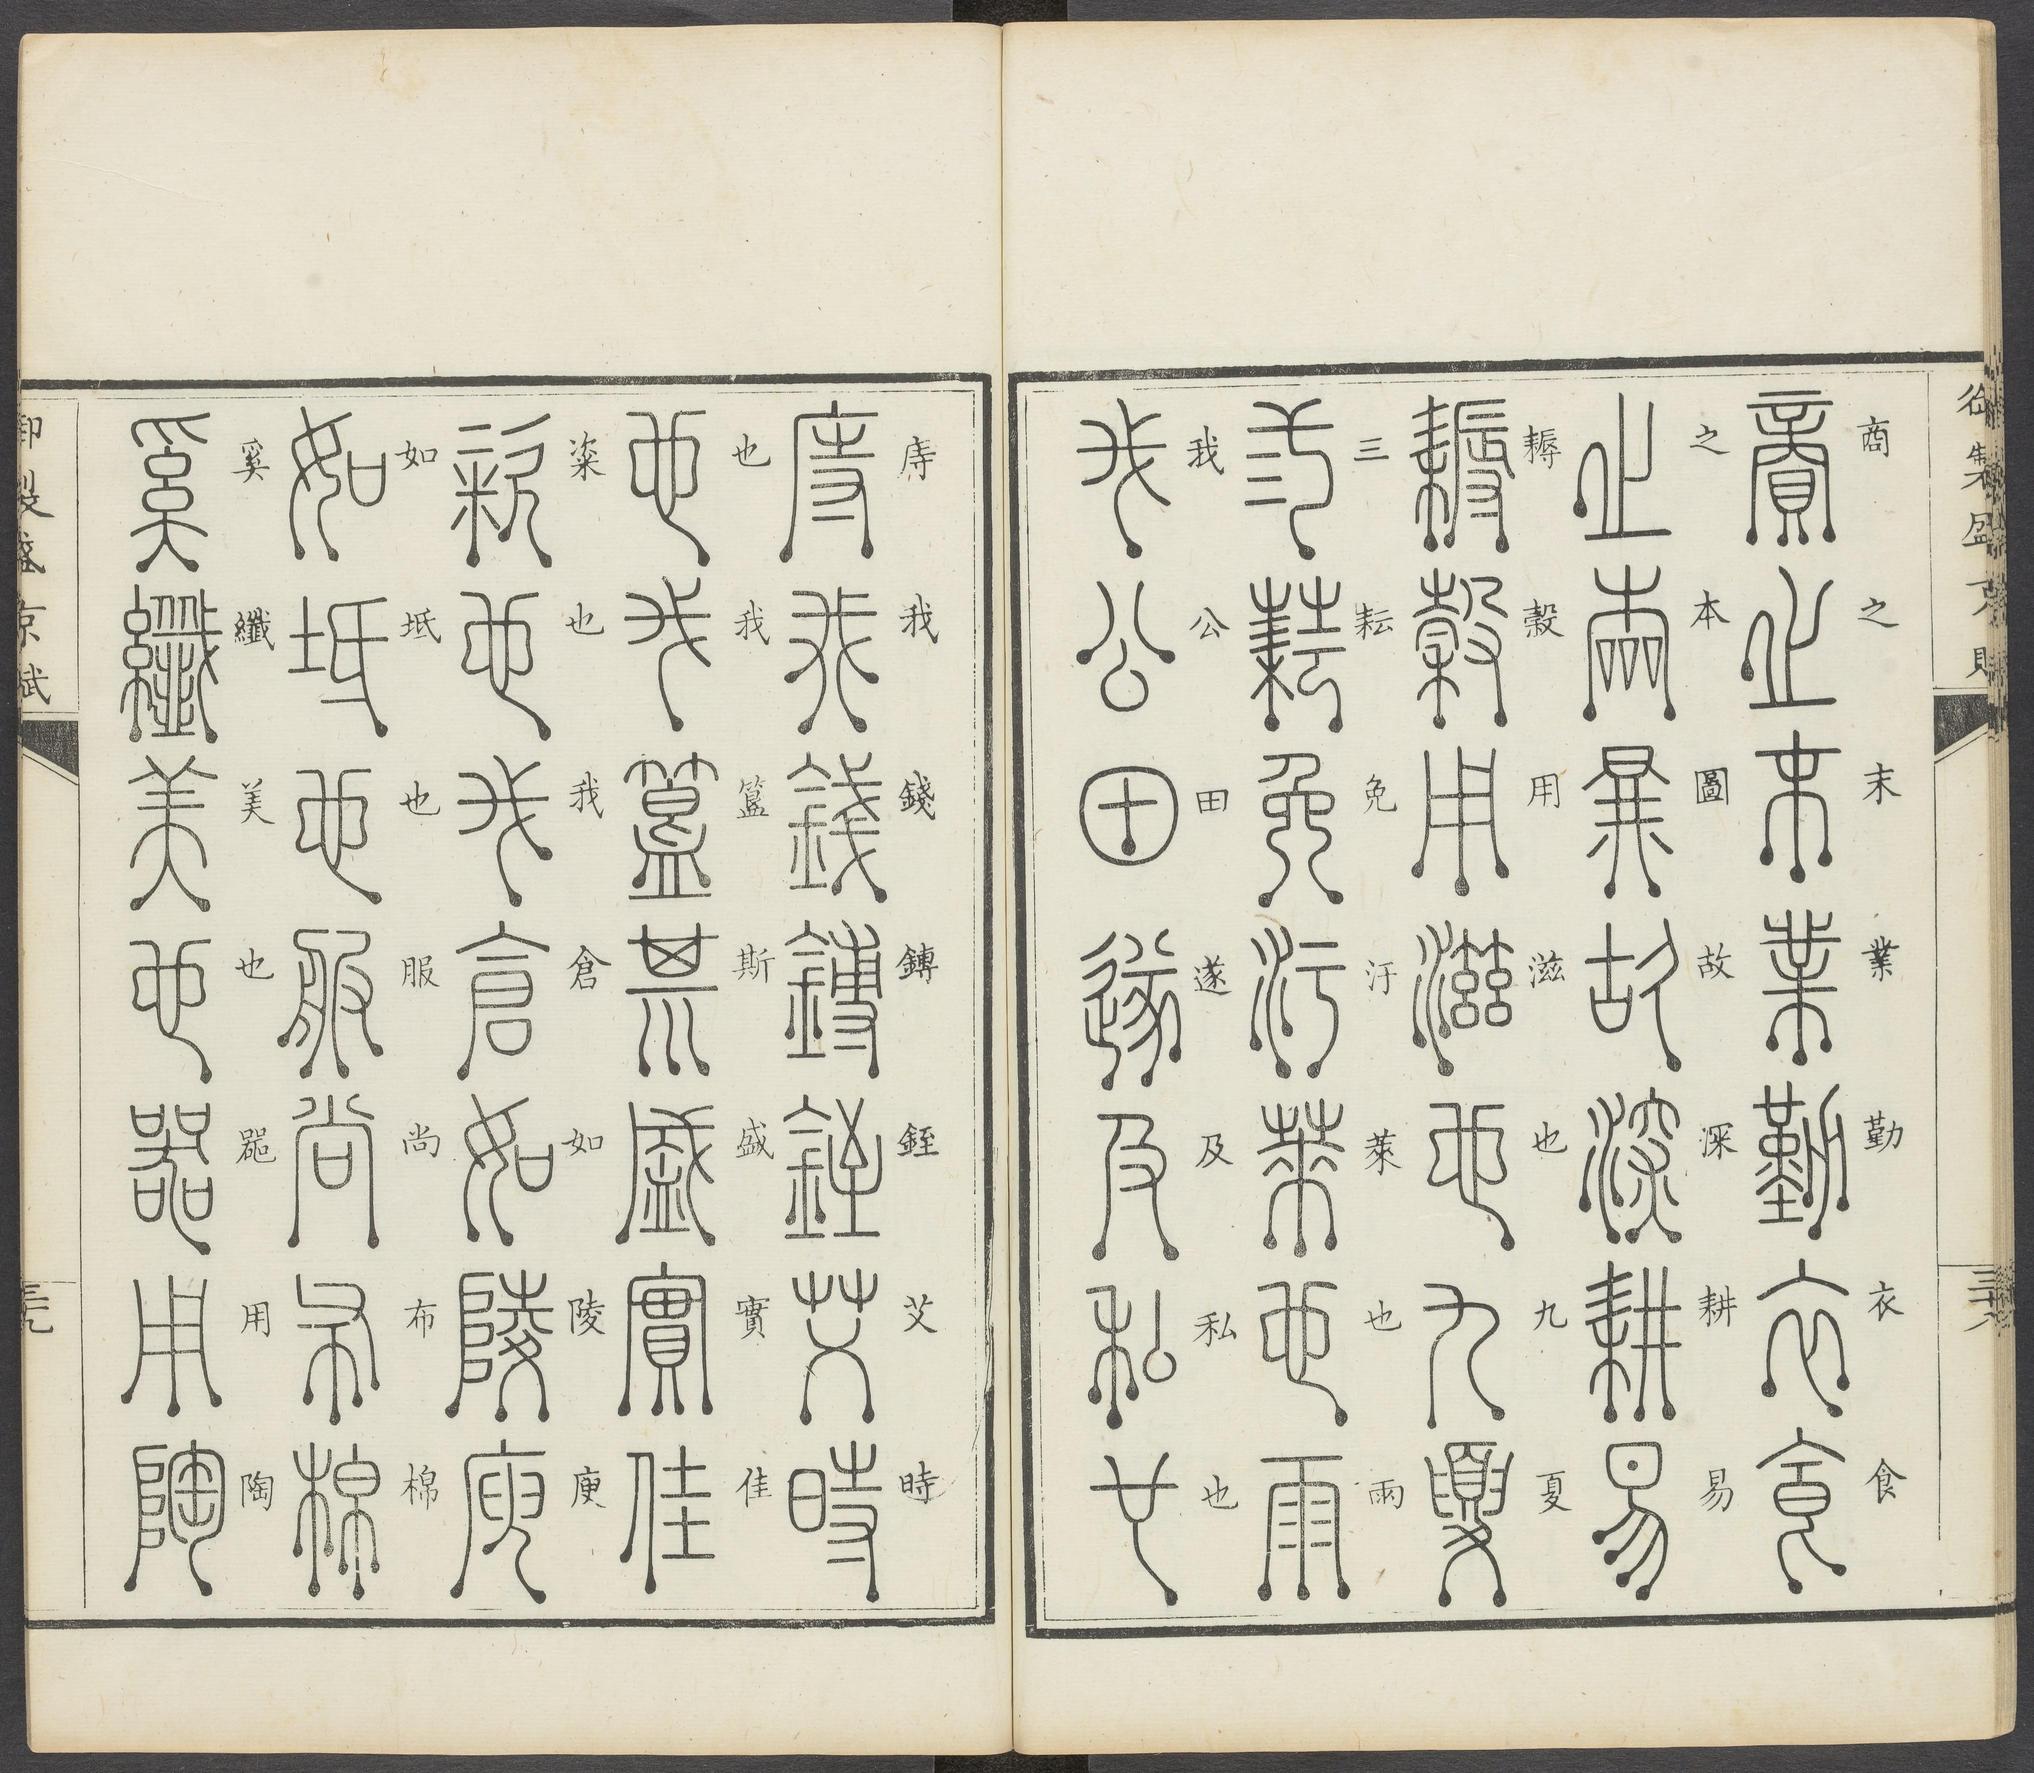 御製盛京賦
商之末業勤衣食
之本圖故深耕易
耨穀用滋也九夏
三耘免汙萊也雨
我公田遂及私也
庤我錢鎛銍艾時
也我簋斯盛實佳
粢也我倉如陵庾
如坻也服尚布棉
奚纖美也器用陶
御製盛京賦